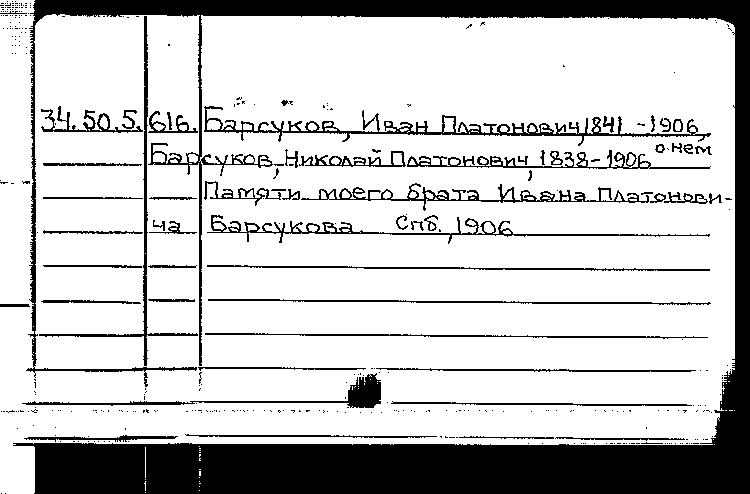 34.50.5. 616. Барсуков, Иван Платонович, 1841 - 1906,
о нем
Барсуков, Николай Платонович, 1838 - 1906
Памяти моего брата Ивана Платонови-
ча Барсукова. Спб., 1906